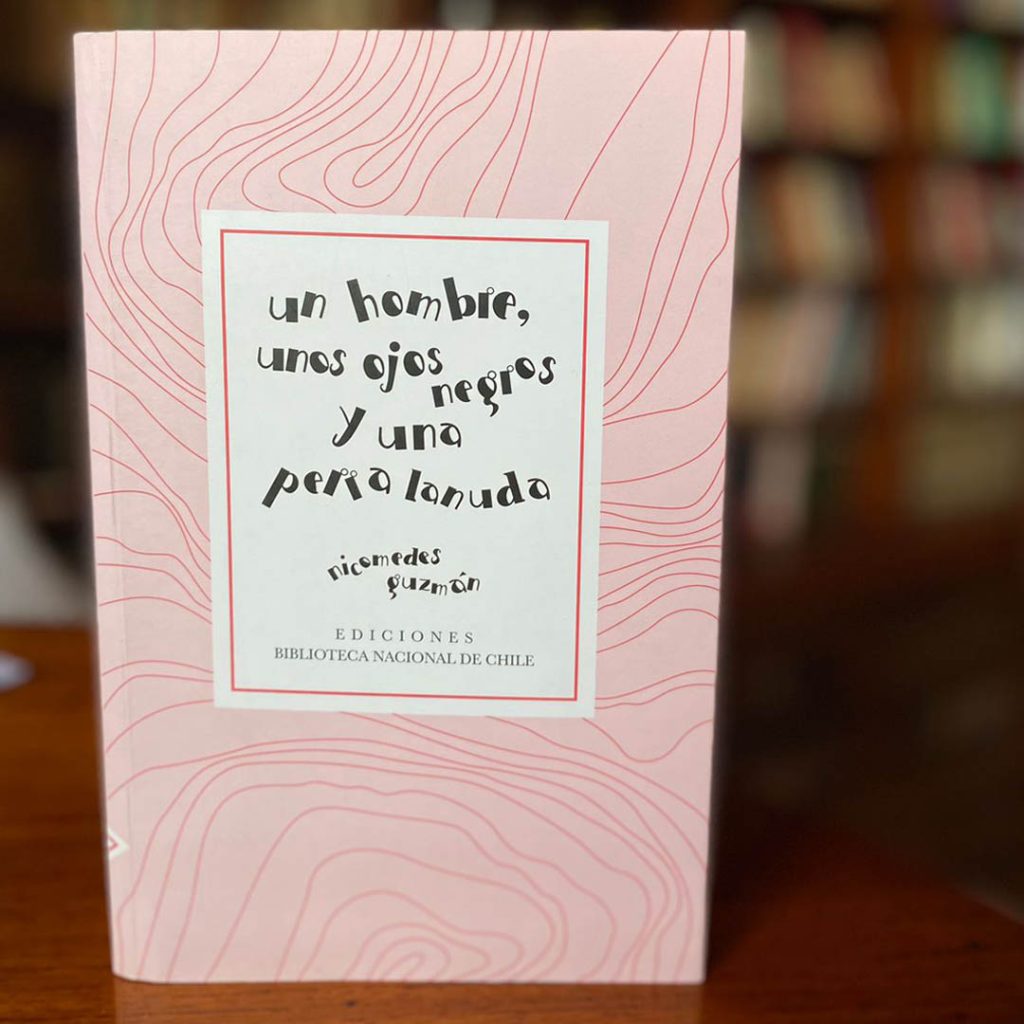 un hombre,
unos ojos
negros
y una
perra lanuda
nicomedes
guzmán
EDICIONES
BIBLIOTECA NACIONAL DE CHILE